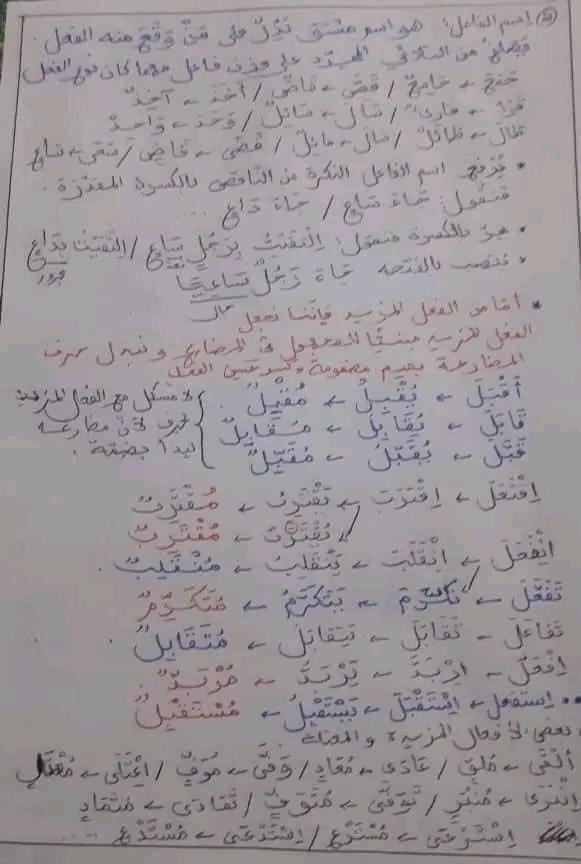 اسم الفاعل: هو اسم مشتق يدل على مَنْ وقَعَ منه الفعل
فيصاغ من الثلاثي المجرّد على وزن فاعل مهما كان نوع الفعل
جَمَعَ ← جَامِعٌ / قَصَّ ← قَاصٌّ / أَخَذَ ← آخِذٌ
قرَأ ← قارئٌ / سَأَلَ ← سَائِلٌ / وَحَدَ ← وَاحِدٌ
طَالَ ← طَائلٌ / مَالَ ← مائِلٌ / قَضَى ← قَاضٍ / سَعَى ← سَاعٍ
• يُرْفع اسم الفاعل النكرة من الناقص بالكسرة المقدّرة.
فنقول: جَاءَ سَاعٍ / جَاءَ دَاعٍ ....
• يجرّ بالكسرة فنقول: اِلْتَقَيْتُ بِرَجُلٍ سَاعٍ / اِلْتَقَيْتُ بِدَاعٍ
نعت مجرور
• ينصب بالفتحة جَاءَ رَجُلٌ سَاعِيًا
حال
• أمّا من الفعل المزيد فإنّنا نجعل
الفعل المزيد مبنيًّا للمجهول في المضارع و نبدل حرف
المضارعة بميم مضمومة وكسر عين الفعل
أَقْبَلَ ← يُقْبِلُ ← مُقْبِلٌ
قَابَلَ ← يُقَابِلُ ← مُقَابِلٌ
قَبَّلَ ← يُقَبِّلُ ← مُقَبِّلٌ
لا مشكل مع الفعل المزيد
بحرف لأنّ مضارعه
يبدأ بضمّة.
اِفْتَعَلَ ← اِقْتَرَبَ ← يَقْتَرِبُ ← مُقْتَرِبٌ
يُقْتَرَبُ ← مُقْتَرِبٌ
اِنْفَعَلَ ← اِنْقَلَبَ ← يَنْقَلِبُ ← مُنْقَلِبٌ.
تَفَعَّلَ ← تَكَرَّمَ ← يَتَكَرَّمُ ← مُتَكَرِّمٌ
تَفَاعَلَ ← تَقَابَلَ ← يَتَقَابَلُ ← مُتَقَابِلٌ
اِفْعَلَّ ← اِرْبَدَّ ← يَرْبَدُّ ← مُرْبَدٌّ
•• اِستفعل ← اِسْتَقْبَلَ ← يَسْتَقْبِلُ ← مُسْتَقْبِلٌ
بعض الأفعال المزيدة و المعتلة
أَلْقَى ← مُلْقٍ / عَادَى ← مُعَادٍ / وَفَّى ← مُوَفٍّ / اِعْتَلَى ← مُعْتَلٍ
اِنْبَرَى ← مُنْبَرٍ / تَوَفَّى ← مُتَوَفٍّ / تَفَادَى ← مُتَفَادٍ
اِسْتَرْعَى ← مُسْتَرْعٍ / اِسْتَدْعَى ← مُسْتَدْعٍ ....